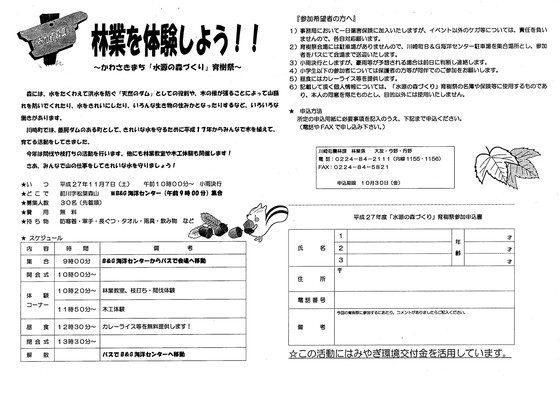 林業を体験しよう！！
～かわさきまち「水源の森づくり」育樹祭～
森には、水をたくわえて洪水を防ぐ「天然のダム」としての役割や、木の根が張ることによって山崩れを防いでくれたり、水をきれいにしたり、いろんな生き物の住みかとなったりするなど、いろいろな働きがあります。
川崎町では、釜房ダムのある町として、きれいな水を守るために平成17年からみんなで木を植えて、育てる活動をしてきました。
今年は間伐や枝打ちの活動を行います。他にも林業教室や木工体験も開催します！
さあ、みんなで山の仕事をしてきれいな水を守りましょう！
★い つ 平成27年11月7日（土） 午前10時00分～ 小雨決行
★どこで 前川字松葉森山 ※B&G海洋センター（午前9時00分）集合
★募集人数 30名（先着順）
★費 用 無 料
★持ち物 記帽器・軍手・長ぐつ・タオル・雨具・飲み物 など
★ スケジュール
内 容 時 間 備 考
集 合 9時00分～ B&G海洋センターからバスで会場へ移動
開会式 10時00分～
体 験 コーナー 10時20分～ 林業教室、枝打ち・間伐体験
11時50分～ 木工体験
昼 食 12時30分～ カレーライス等を無料提供します！
閉会式 13時30分～
解 散 バスでB&G海洋センターへ移動
『参加希望者の方へ』
1）事務局において一日傷害保険に加入いたしますが、イベント以外のケガ等については、責任を負いませんので、各自対応でお願いします。
2）育樹祭会場には駐車場がありませんので、川崎町B&G海洋センター駐車場を集合場所とし、参加者をバスにて会場まで送迎いたします。
3）小雨決行としますが、豪雨等が予想される場合は前日に判断し連絡します。
4）小学生以下の参加者については保護者の方等が同伴でのご参加をお願いします。
5）昼食にはカレーライス等を提供します。
6）記載して頂く個人情報については、「水源の森づくり」育樹祭の名簿や保険等に使用するものであり、本人の同意を得たものとし、目的以外には使用いたしません。
★ 申込方法
所定の申込用紙に必要事項を記入のうえ、下記まで申込ください。
（電話やFAXで申し込み下さい。）
川崎町農林課 林業係 大友・今野・丹野
電 話：0224-84-2111（内線1155・1156）
FAX：0224-84-5821
申込期限 10月30日（金）
平成27年度「水源の森づくり」育樹祭参加申込書
氏 名 1 年齢 才
2 才
3 才
住 所 〒
電話番号
備 考 今回の育樹祭に参加するにあたり、コメントがありましたらご記入ください。
☆この活動にはみやぎ環境交付金を活用しています。